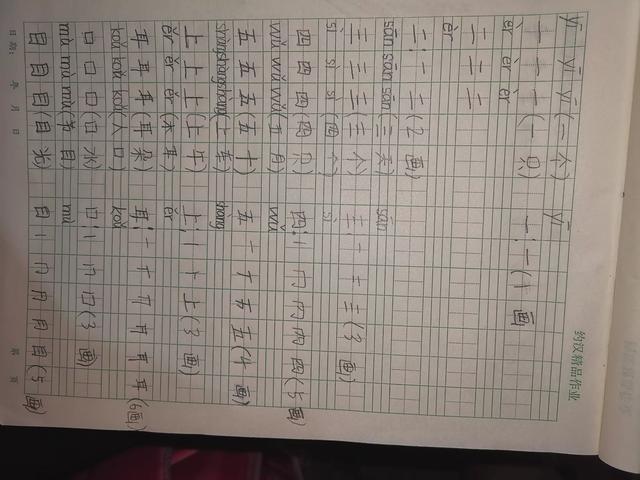 约汉精品作业
yī yī yī (一 个) yī
一 一 一 (一 只) 一:一 (1 画)
èr èr èr
二 二 二
èr
二:一 二 (2 画)
sān sān sān (三 天) sān
三 三 三 (三 个) 三:一 二 三 (3 画)
sì sì sì (四 个) sì
四 四 四 (四 只) 四:丨 冂 四 (5 画)
wǔ wǔ wǔ (五 月) wǔ
五 五 五 (五 十) 五 一 丅 五 (4 画)
shàng shàng shàng (上 ) shàng
上 上 上 (上 午) 上:丨 卜 上 (3 画)
ěr ěr ěr (木 耳) ěr
耳 耳 耳 (耳 朵) 耳:一 丅 耳 (6 画)
kǒu kǒu kǒu (人 口) kǒu
口 口 口 (口 水) 口:丨 冂 口 (3 画)
mù mù mù ( 目) mù
目 目 目 (目 光) 目 丨 冂 月 月 目 (5 画)
日期: 年 月 日 第 页